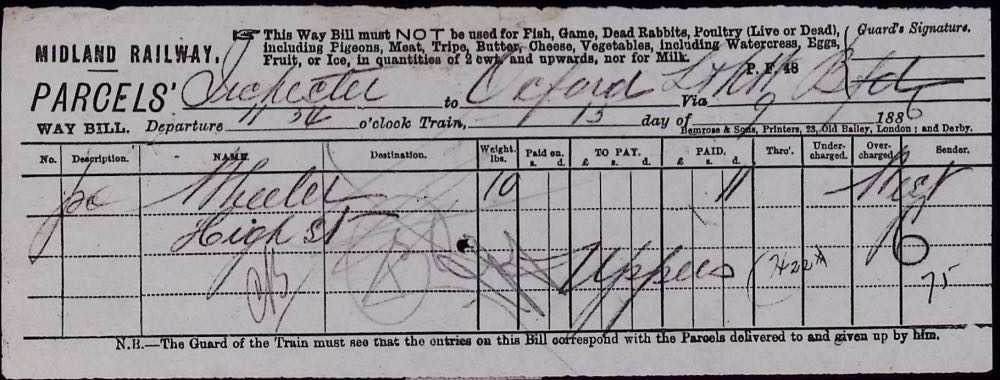 ☞ This Way Bill must NOT be used for Fish, Game, Dead Rabbits, Poultry (Live or Dead),
including Pigeons, Meat, Tripe, Butter, Cheese, Vegetables, including Watercress, Eggs,
Fruit, or Ice, in quantities of 2 cwt. and upwards, nor for Milk.
Guard's Signature.
MIDLAND RAILWAY.
P. F. 48
PARCELS' to Oxford Via
WAY BILL. Departure 11 34 o'clock Train, 13 day of 9 1886
Bemrose & Sons, Printers, 23, Old Bailey, London; and Derby.
No. Description. NAME. Destination. Weight. lbs. Paid on. s. d. TO PAY. £ s. d. PAID. £ s. d. Thro'. Under-charged. Over-charged. Sender.
pc Wheeler 10 11
High St 6
Uppers 75
N.B.—The Guard of the Train must see that the entries on this Bill correspond with the Parcels delivered to and given up by him.